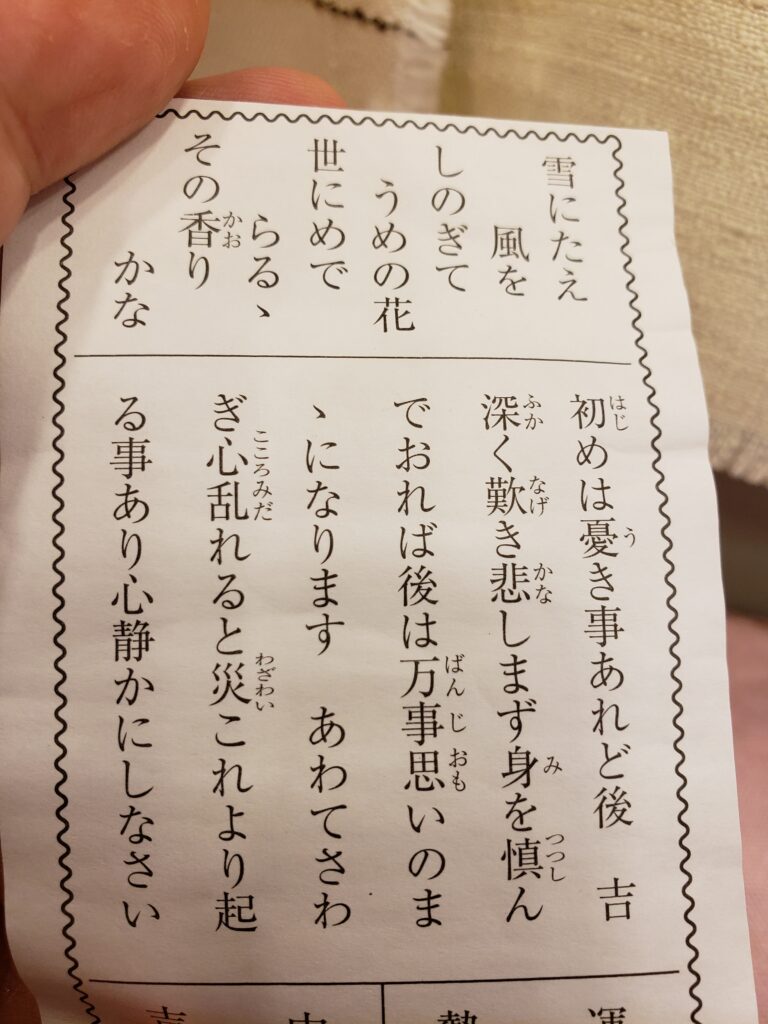 雪にたえ
風を
しのぎて
うめの花
世にめで
らるゝ
その香り
かな
初めは憂き事あれど後　吉
深く歎き悲しまず身を慎ん
でおれば後は万事思いのま
ゝになります　あわてさわ
ぎ心乱れると災これより起
る事あり心静かにしなさい